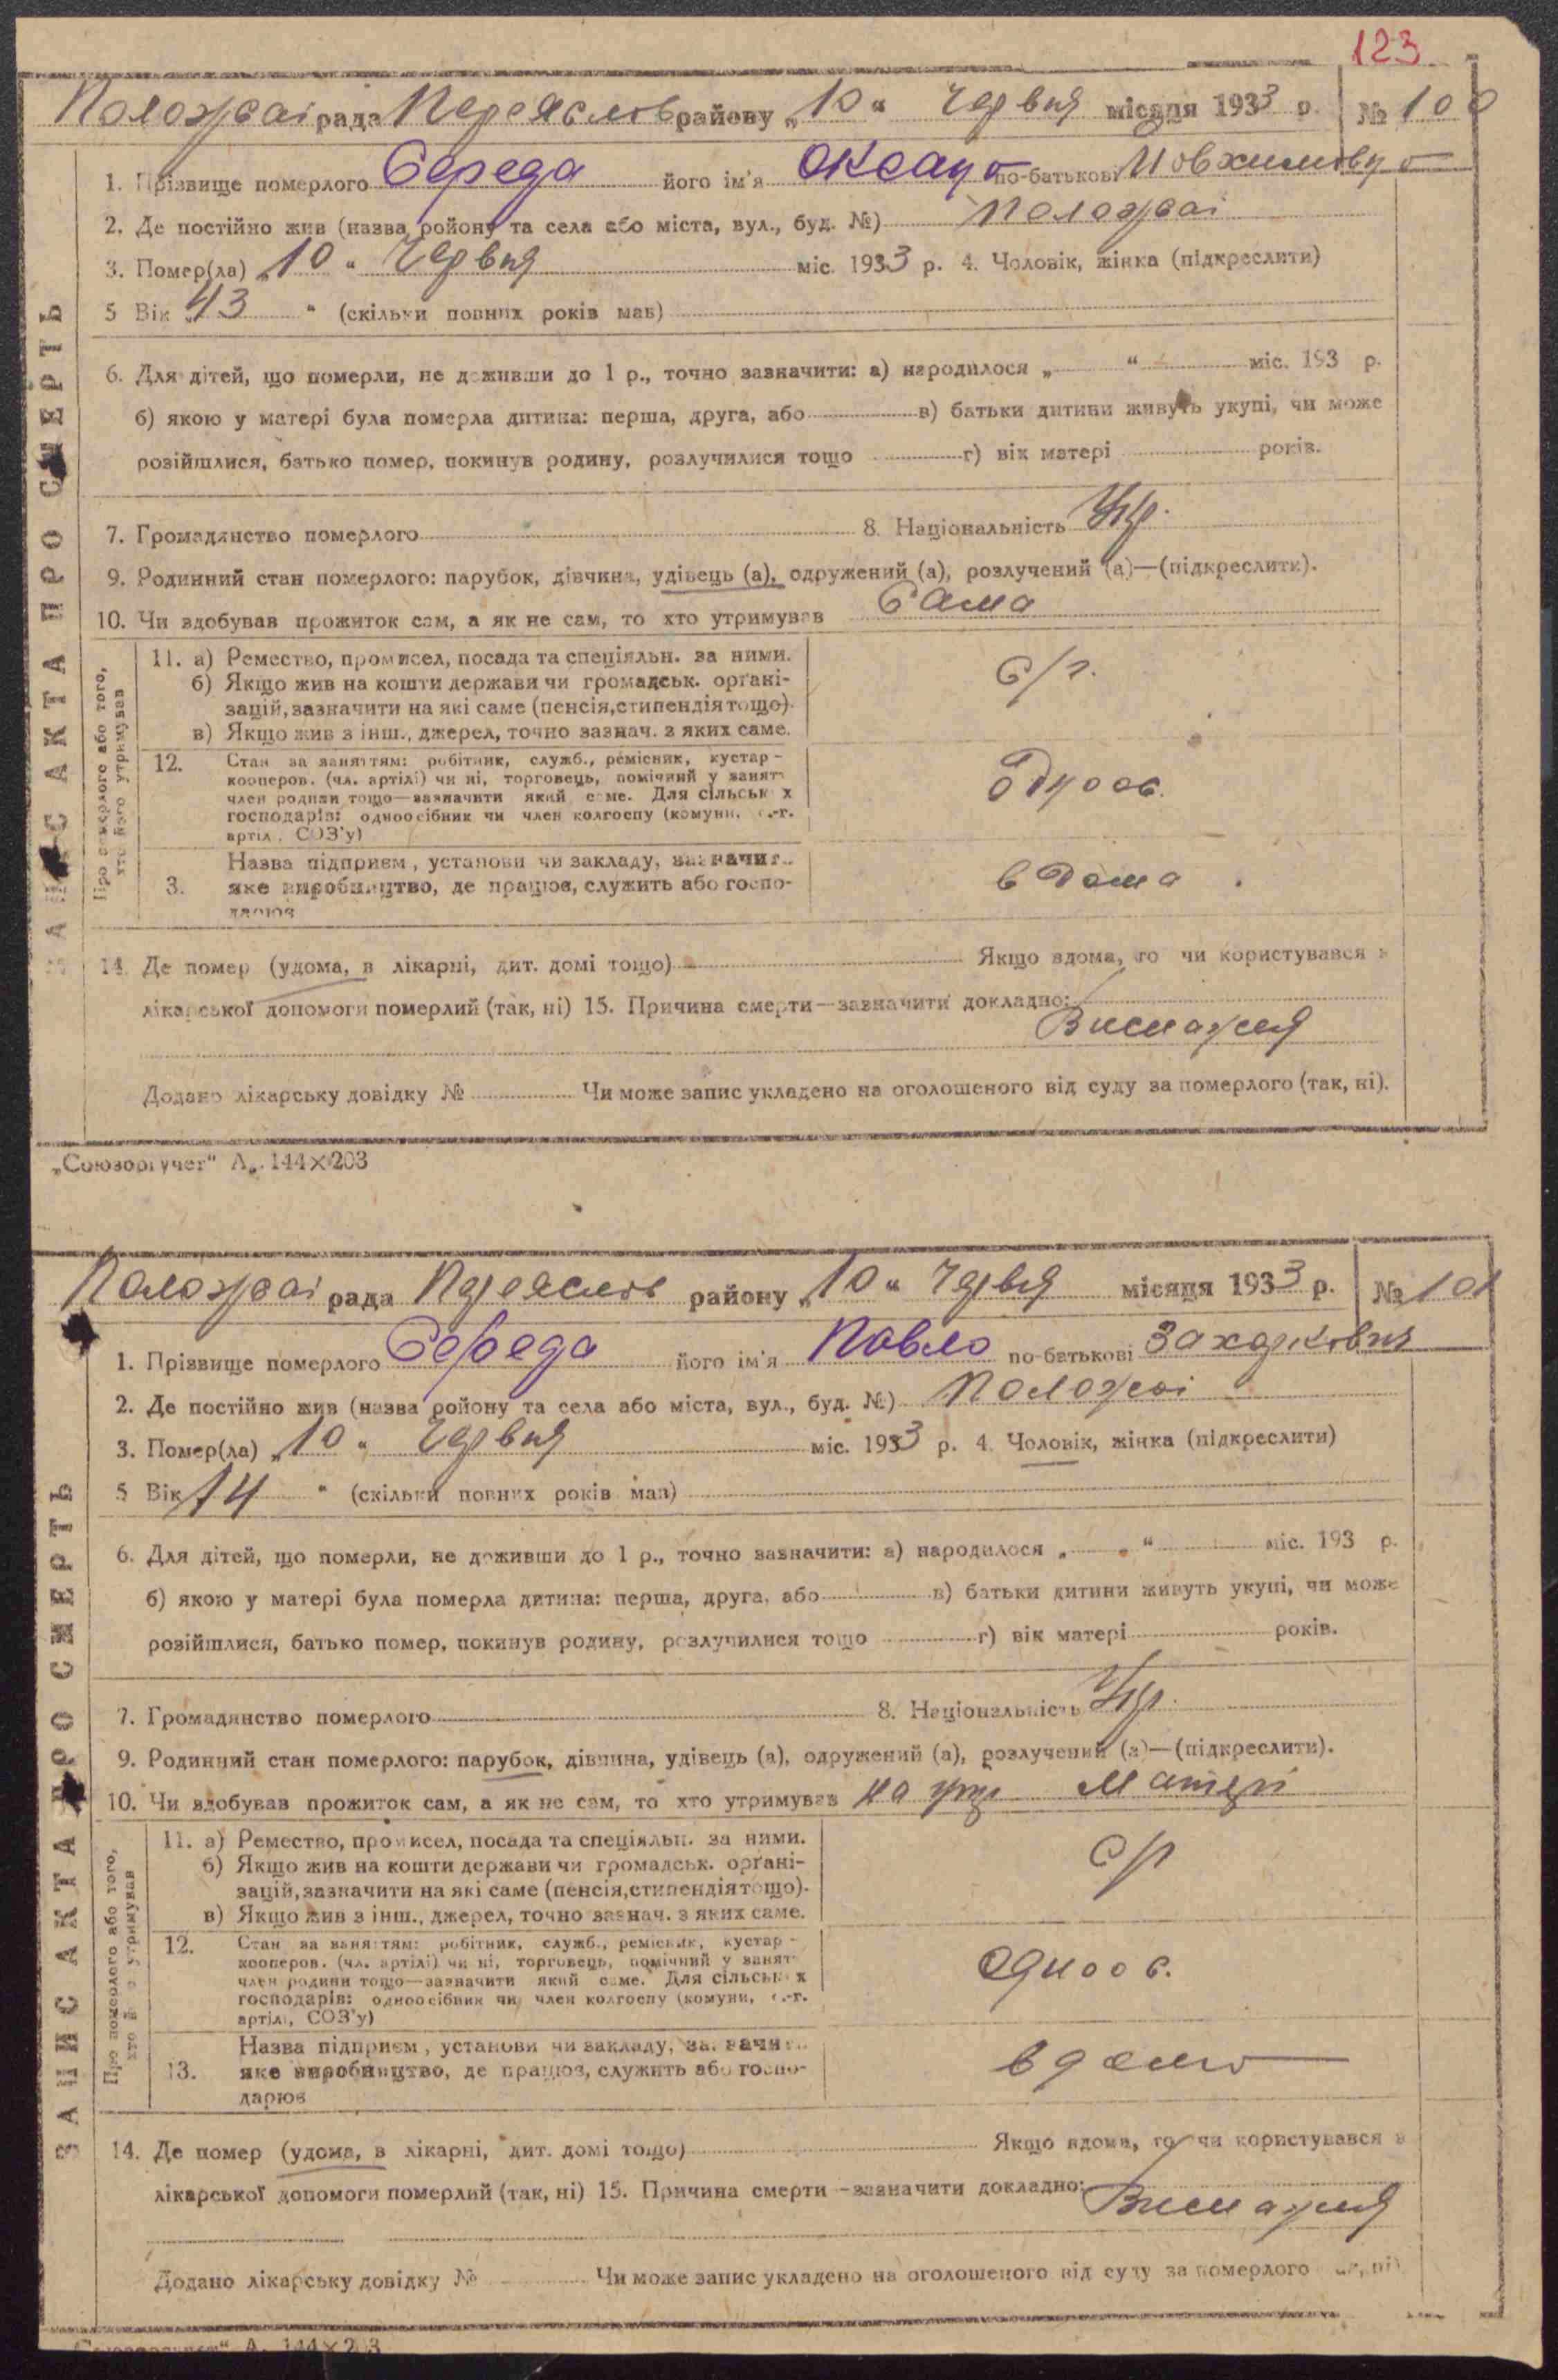 123
Положаі рада Переяслов району „10“ червня місяця 1933 р. № 100
1. Прізвище померлого Середа його ім'я Оксана по-батькові
2. Де постійно жив (назва району та села або міста, вул., буд. №) Положаі
3. Помер(ла) „10“ червня міс. 1933 р. 4. Чоловік, жінка (підкреслити)
5 Вік „43“ (скільки повних років мав)
6. Для дітей, що померли, не доживши до 1 р., точно зазначити: а) народилося „ “ міс. 193 р.
б) якою у матері була померла дитина: перша, друга, або в) батьки дитини живуть укупі, чи може
розійшлися, батько помер, покинув родину, розлучилися тощо г) вік матері років.
7. Громадянство померлого 8. Національність Укр.
9. Родинний стан померлого: парубок, дівчина, удівець (а), одружений (а), розлучений (а)—(підкреслити).
10. Чи здобував прожиток сам, а як не сам, то хто утримував Сама
ЗАПИС АКТА ПРО СМЕРТЬ
Про померлого або того, хто його утримував
11. а) Ремество, промисел, посада та спеціяльн. за ними.
б) Якщо жив на кошти держави чи громадськ. орґані-
зацій, зазначити на які саме (пенсія, стипендія тощо).
в) Якщо жив з інш., джерел, точно зазнач. з яких саме.
С/г.
12. Стан за заняттям: робітник, служб., ремісник, кустар-
кооперов. (чл. артілі) чи ні, торговець, помічний у занятт
член родини тощо—зазначити який саме. Для сільськ х
господарів: одноосібник чи член колгоспу (комуни, с.-г.
артіл, СОЗ'у)
Одноос.
3. Назва підприєм, установи чи закладу, зазначит
яке виробництво, де працює, служить або госпо-
дарює
в дома
14. Де помер (удома, в лікарні, дит. домі тощо) Якщо вдома, то чи користувався з
лікарської допомоги померлий (так, ні) 15. Причина смерти—зазначити докладно:
Виснаження
Додано лікарську довідку № Чи може запис укладено на оголошеного від суду за померлого (так, ні).
„Союзоргучет“ А. 144×203
Положаі рада Переяслов району „10“ червня місяця 1933 р. № 101
1. Прізвище померлого Середа його ім'я Павло по-батькові Захаркович
2. Де постійно жив (назва району та села або міста, вул., буд. №) Положаі
3. Помер(ла) „10“ червня міс. 1933 р. 4. Чоловік, жінка (підкреслити)
5 Вік 14“ (скільки повних років мав)
6. Для дітей, що померли, не доживши до 1 р., точно зазначити: а) народилося „ “ міс. 193 р.
б) якою у матері була померла дитина: перша, друга, або в) батьки дитини живуть укупі, чи може
розійшлися, батько помер, покинув родину, розлучилися тощо г) вік матері років.
7. Громадянство померлого 8. Національність Укр.
9. Родинний стан померлого: парубок, дівчина, удівець (а), одружений (а), розлучений (а)—(підкреслити).
10. Чи здобував прожиток сам, а як не сам, то хто утримував на утр Матері
ЗАПИС АКТА ПРО СМЕРТЬ
Про померлого або того, хто його утримував
11. а) Ремество, промисел, посада та спеціяльн. за ними.
б) Якщо жив на кошти держави чи громадськ. орґані-
зацій, зазначити на які саме (пенсія, стипендія тощо).
в) Якщо жив з інш., джерел, точно зазнач. з яких саме.
с/г
12. Стан за заняттям: робітник, служб., ремісник, кустар-
кооперов. (чл. артілі) чи ні, торговець, помічний у занятт
член родини тощо—зазначити який саме. Для сільськ х
господарів: одноосібник чи член колгоспу (комуни, с.-г.
артілі, СОЗ'у)
Одноос.
13. Назва підприєм, установи чи закладу, зазначит
яке виробництво, де працює, служить або госпо-
дарює
вдома
14. Де помер (удома, в лікарні, дит. домі тощо) Якщо вдома, то чи користувався з
лікарської допомоги померлий (так, ні) 15. Причина смерти—зазначити докладно:
Виснаження
Додано лікарську довідку № Чи може запис укладено на оголошеного від суду за померлого
А. 144×203